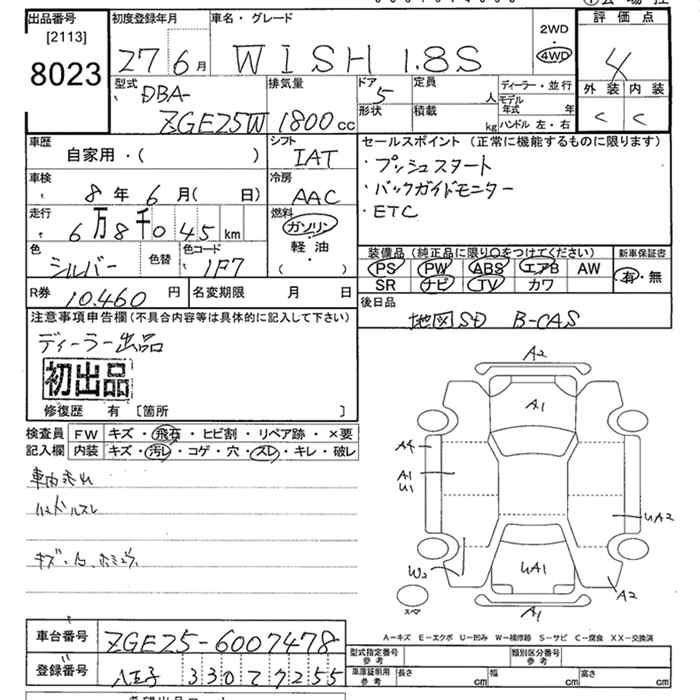 出品番号 初度登録年月 車名・グレード 2WD 評価点
[2113]
8023 27 6月 WISH 1.8S 4WD 4
型式 排気量 ドア 定員 ディーラー・並行 外装 内装
DBA- 5 人 モデル年式 年
ZGE25W 1800cc 形状 積載 kg ハンドル 左・右 C C
車歴 シフト セールスポイント (正常に機能するものに限ります)
自家用・( ) IAT ・プッシュスタート
車検 冷房 ・バックガイドモニター
8年 6月( 日) AAC ・ETC
走行 燃料
6万8千045km ガソリン
色 色替 色コード 軽油 装備品 (純正品に限り〇をつけてください) 新車保証書
シルバー 1F7 ( ) PS PW ABS エアB AW 有・無
SR ナビ TV カワ
R券 10.460円 名変期限 月 日 後日品
注意事項申告欄(不具合内容等は具体的に記入して下さい) 地図SD B-CAS
ディーラー出品
初出品
修復歴 有 [箇所 ]
検査員 FW キズ・飛石・ヒビ割・リペア跡・×要
記入欄 内装 キズ・汚レ・コゲ・穴・スレ・キレ・破レ
A2
A1
A4
A1
U1
UA2
UA1
W2
A2
スペア
A1
A-キズ E-エクボ U-凹み W-補修跡 S-サビ C-腐食 XX-交換済
車台番号 ZGE25-6007478 型式指定番号 参考 類別区分番号 参考
登録番号 八王子 330 て 7255 車庫証明用 参考 長さ cm 幅 cm 高さ cm